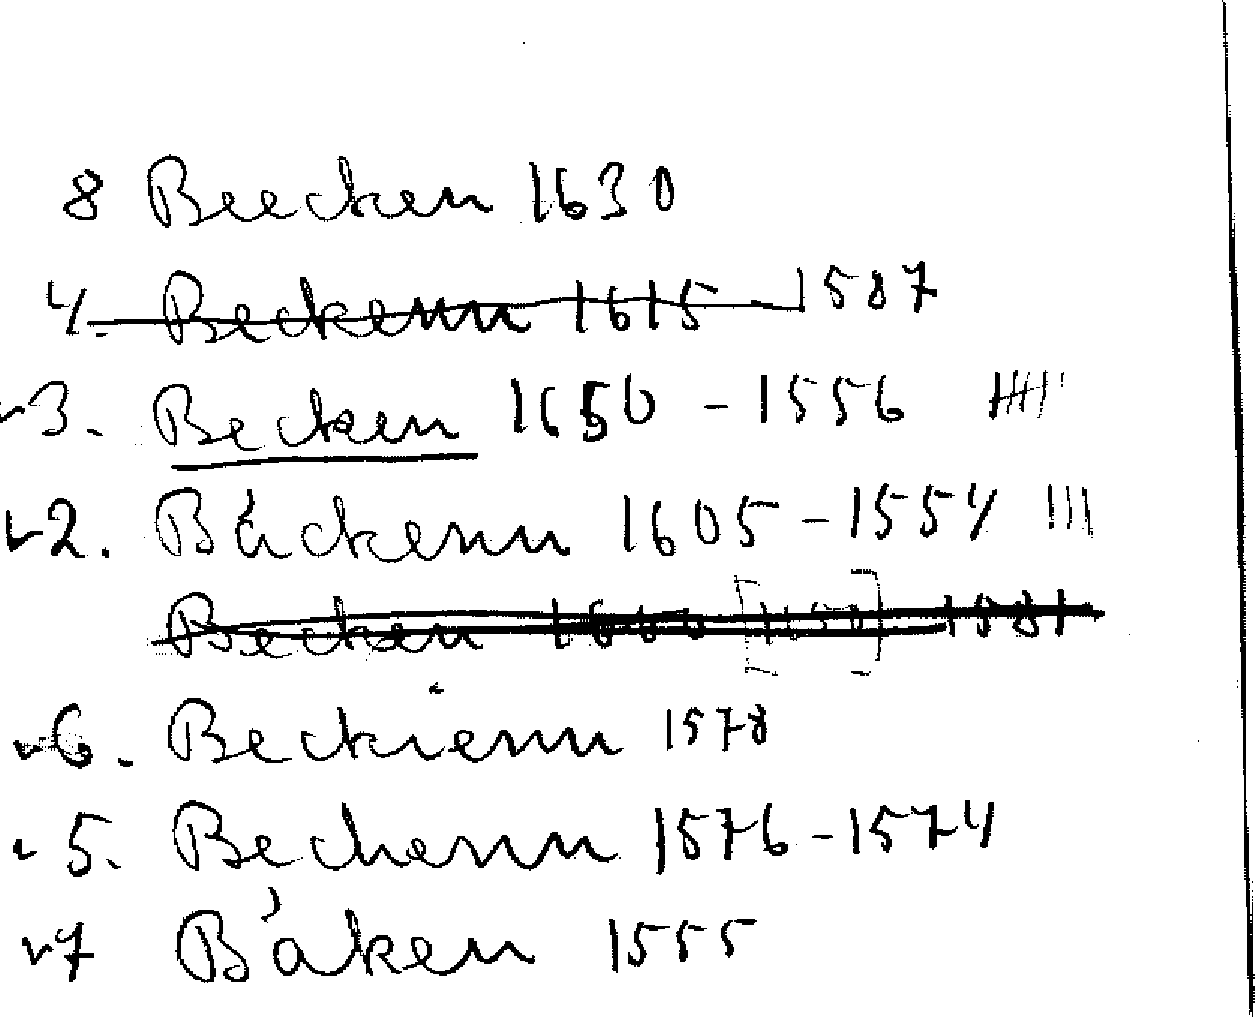 8 Beecken 1630
4. Beckenn 1615 1587
3. Becken 1650 - 1556
2. Báckenn 1605 - 1554 !!!
Becken 1581
6. Beckienn 1578
5. Beckenn 1576 - 1574
7 Báken 1555